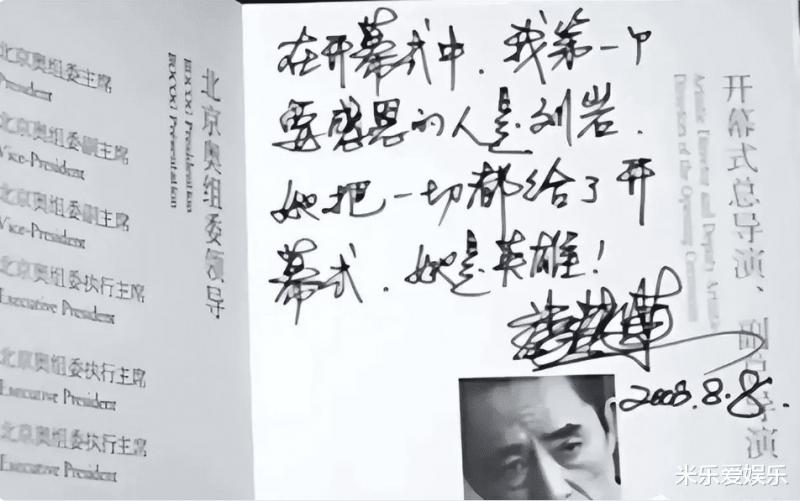 北京奥组委主席
President
北京奥组委副主席
Vice-President
北京奥组委副主席
Vice-President
北京奥组委执行主席
Executive President
北京奥组委执行主席
Executive President
北京奥组委执行主席
Executive President
北京奥组委领导
BOCOG Presentation
在开幕式中，我第一个
要感恩的人是刘岩．
她把一切都给了开
幕式．她是英雄！
张艺谋
2008.8.8.
开幕式总导演、副总导演
Directors of the Opening Ceremony
米乐爱娱乐